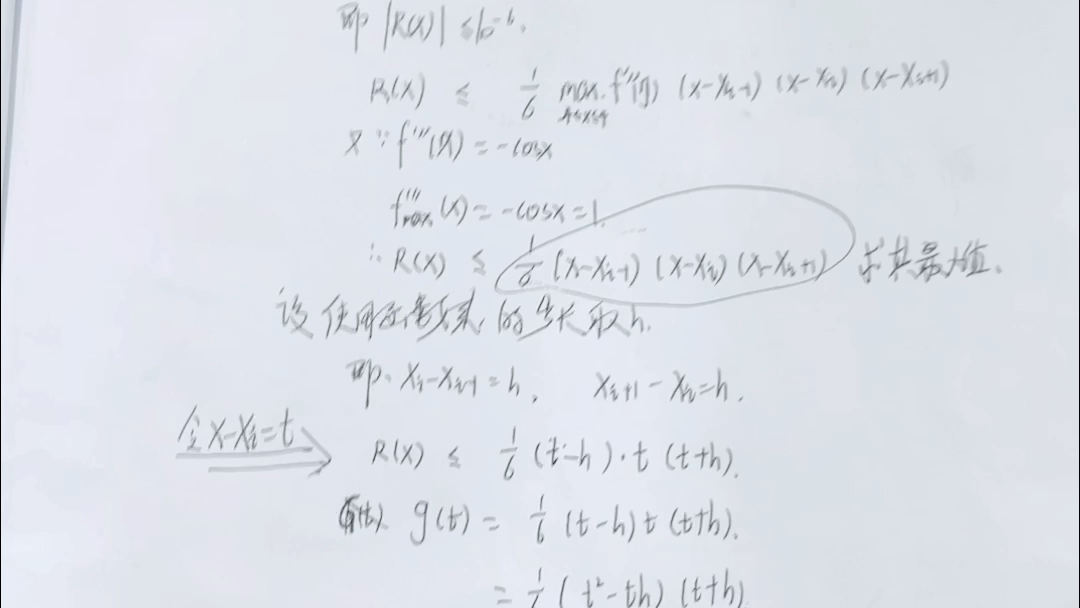 即 |R(x)| ≤ 10⁻⁶.
R(x) ≤ 1/6 max f'''(η) (x-xᵢ₋₁) (x-xᵢ) (x-xᵢ₊₁)
又∵ f'''(x) = -cosx
f'''max(x) = -cosx = 1.
∴ R(x) ≤ 1/6 (x-xᵢ₋₁) (x-xᵢ) (x-xᵢ₊₁) 求其最大值.
设使用函数表的步长取h.
即. xᵢ-xᵢ₋₁ = h, xᵢ₊₁-xᵢ = h.
令 x-xᵢ = t
R(x) ≤ 1/6 (t-h)·t (t+h).
g(t) = 1/6 (t-h) t (t+h).
= 1/6 (t²-th) (t+h)